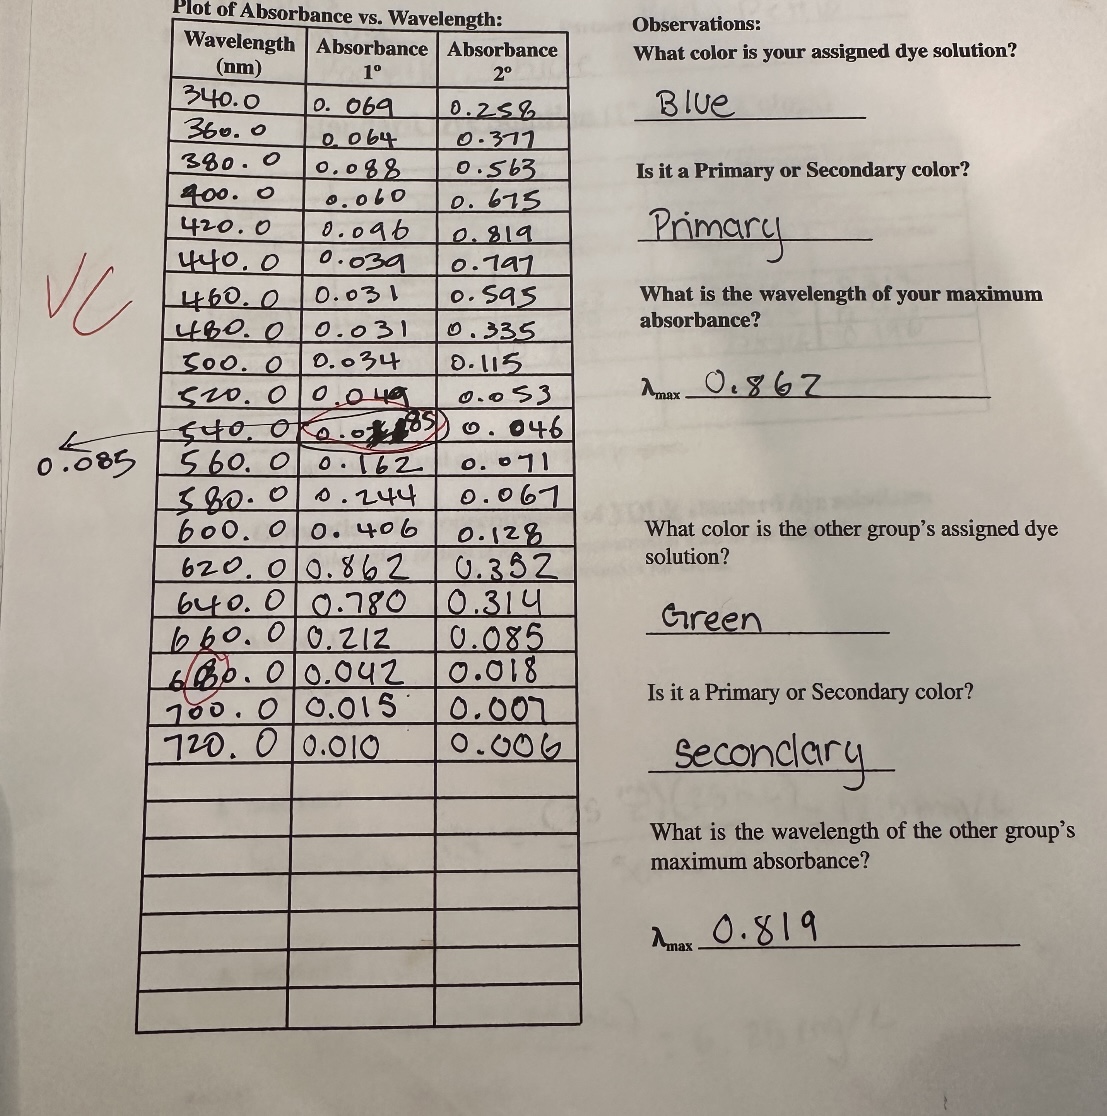 Plot of Absorbance vs. Wavelength:
Wavelength (nm) Absorbance 1° Absorbance 2°
340.0 0.069 0.258
360.0 0.064 0.377
380.0 0.088 0.563
400.0 0.060 0.675
420.0 0.096 0.819
440.0 0.039 0.797
460.0 0.031 0.595
480.0 0.031 0.335
500.0 0.034 0.115
520.0 0.049 0.053
540.0 0.085 0.046
0.085
560.0 0.162 0.071
580.0 0.244 0.067
600.0 0.406 0.128
620.0 0.862 0.352
640.0 0.780 0.314
660.0 0.212 0.085
680.0 0.042 0.018
700.0 0.015 0.007
720.0 0.010 0.006
VC
Observations:
What color is your assigned dye solution?
Blue
Is it a Primary or Secondary color?
Primary
What is the wavelength of your maximum
absorbance?
λmax 0.862
What color is the other group's assigned dye
solution?
Green
Is it a Primary or Secondary color?
Secondary
What is the wavelength of the other group's
maximum absorbance?
λmax 0.819